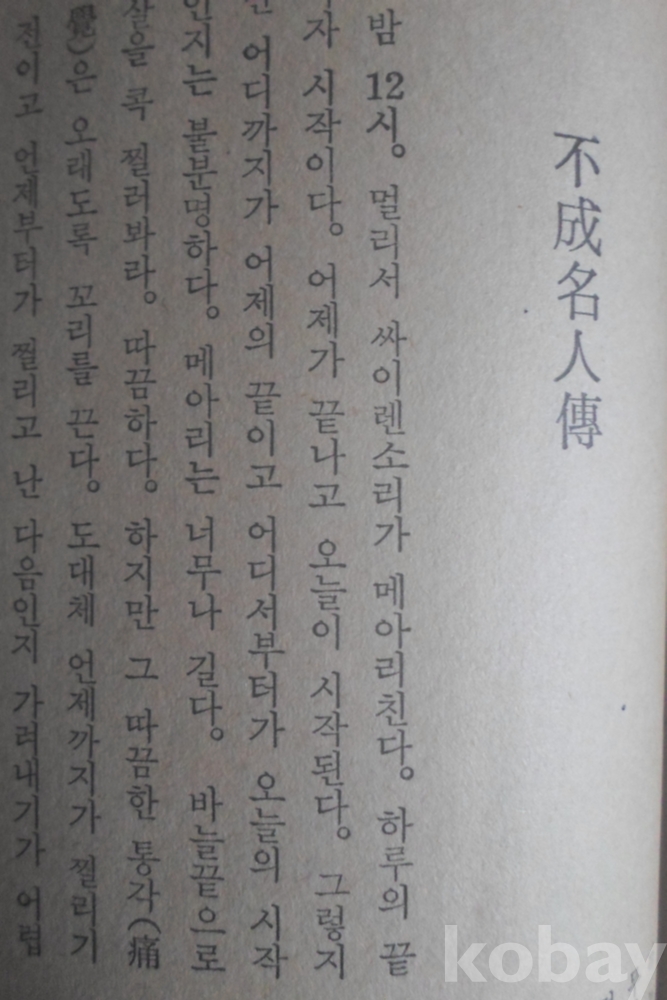 不成名人傳
밤 12시。 멀리서 싸이렌소리가 메아리친다。 하루의 끝
자 시작이다。 어제가 끝나고 오늘이 시작된다。 그렇지
어디까지가 어제의 끝이고 어디서부터가 오늘의 시작
인지는 불분명하다。 메아리는 너무나 길다。 바늘끝으로
살을 콕 찔러봐라。 따끔하다。 하지만 그 따끔한 통각(痛
覺)은 오래도록 꼬리를 끈다。 도대체 언제까지가 찔리기
전이고 언제부터가 찔리고 난 다음인지 가려내기가 어렵
kobay